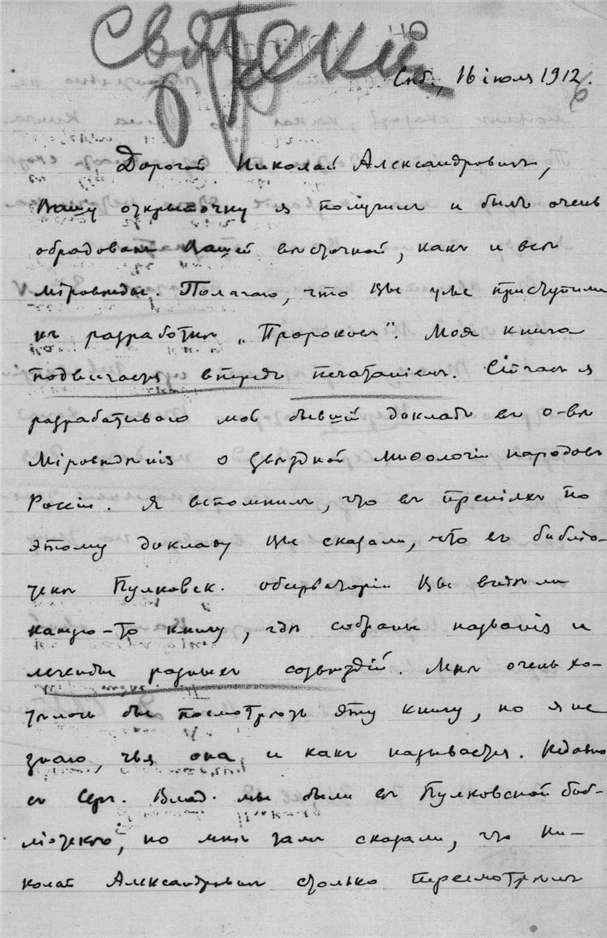 Святский
Спб., 16 июля 1912.
Дорогой Николай Александровичъ,
Вашу открыточку я получилъ и былъ очень
обрадованъ Вашей весточкой, какъ и все
міроведы. Полагаю, что Вы уже приступили
къ разработке „Пророковъ". Моя книга
подвигается впередъ печатаніемъ. Сейчасъ я
разрабатываю мой бывшій докладъ въ о-ве
Міроведенія о звездной мифологіи народовъ
Россіи. Я вспомнилъ, что въ преніяхъ по
этому докладу Вы сказали, что въ библіо-
теке Пулковск. обсерваторіи Вы видели
какую-то книгу, где собраны названія и
легенды разныхъ созвездій. Мне очень хо-
телось бы посмотреть эту книгу, но я не
знаю, чья она и какъ называется. Недавно
съ Серг. Влад. мы были въ Пулковской биб-
ліотеке, но мне тамъ сказали, что Ни-
колай Александровичъ столько пересмотрелъ